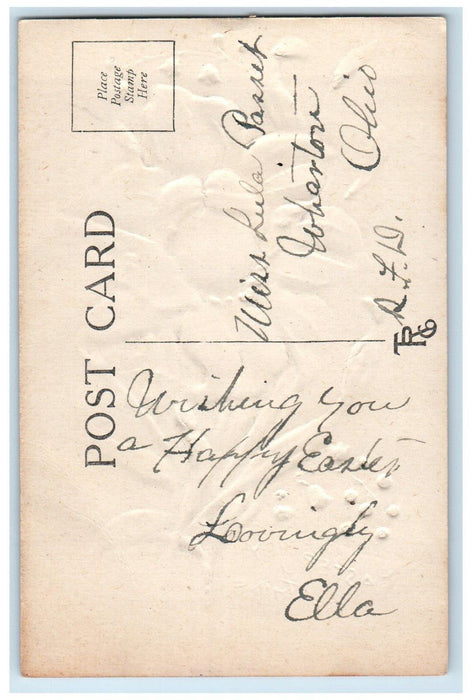 POST CARD
Place
Postage
Stamp
Here
Wishing you
a Happy Easter
Lovingly
Ella
Miss Lula Passet
Wharton
Ohio
R.F.D.